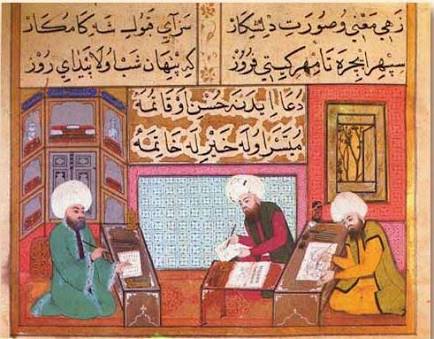 زهی معنی و صورت دلشکار سزای قبول شه کامکار
سپهر ایچره تا مهر کیتی فروز که پنهان شب اولا پیدای روز
دعا ایدنه حسن اوقاتمه
میسر اوله خیر له خاتمه